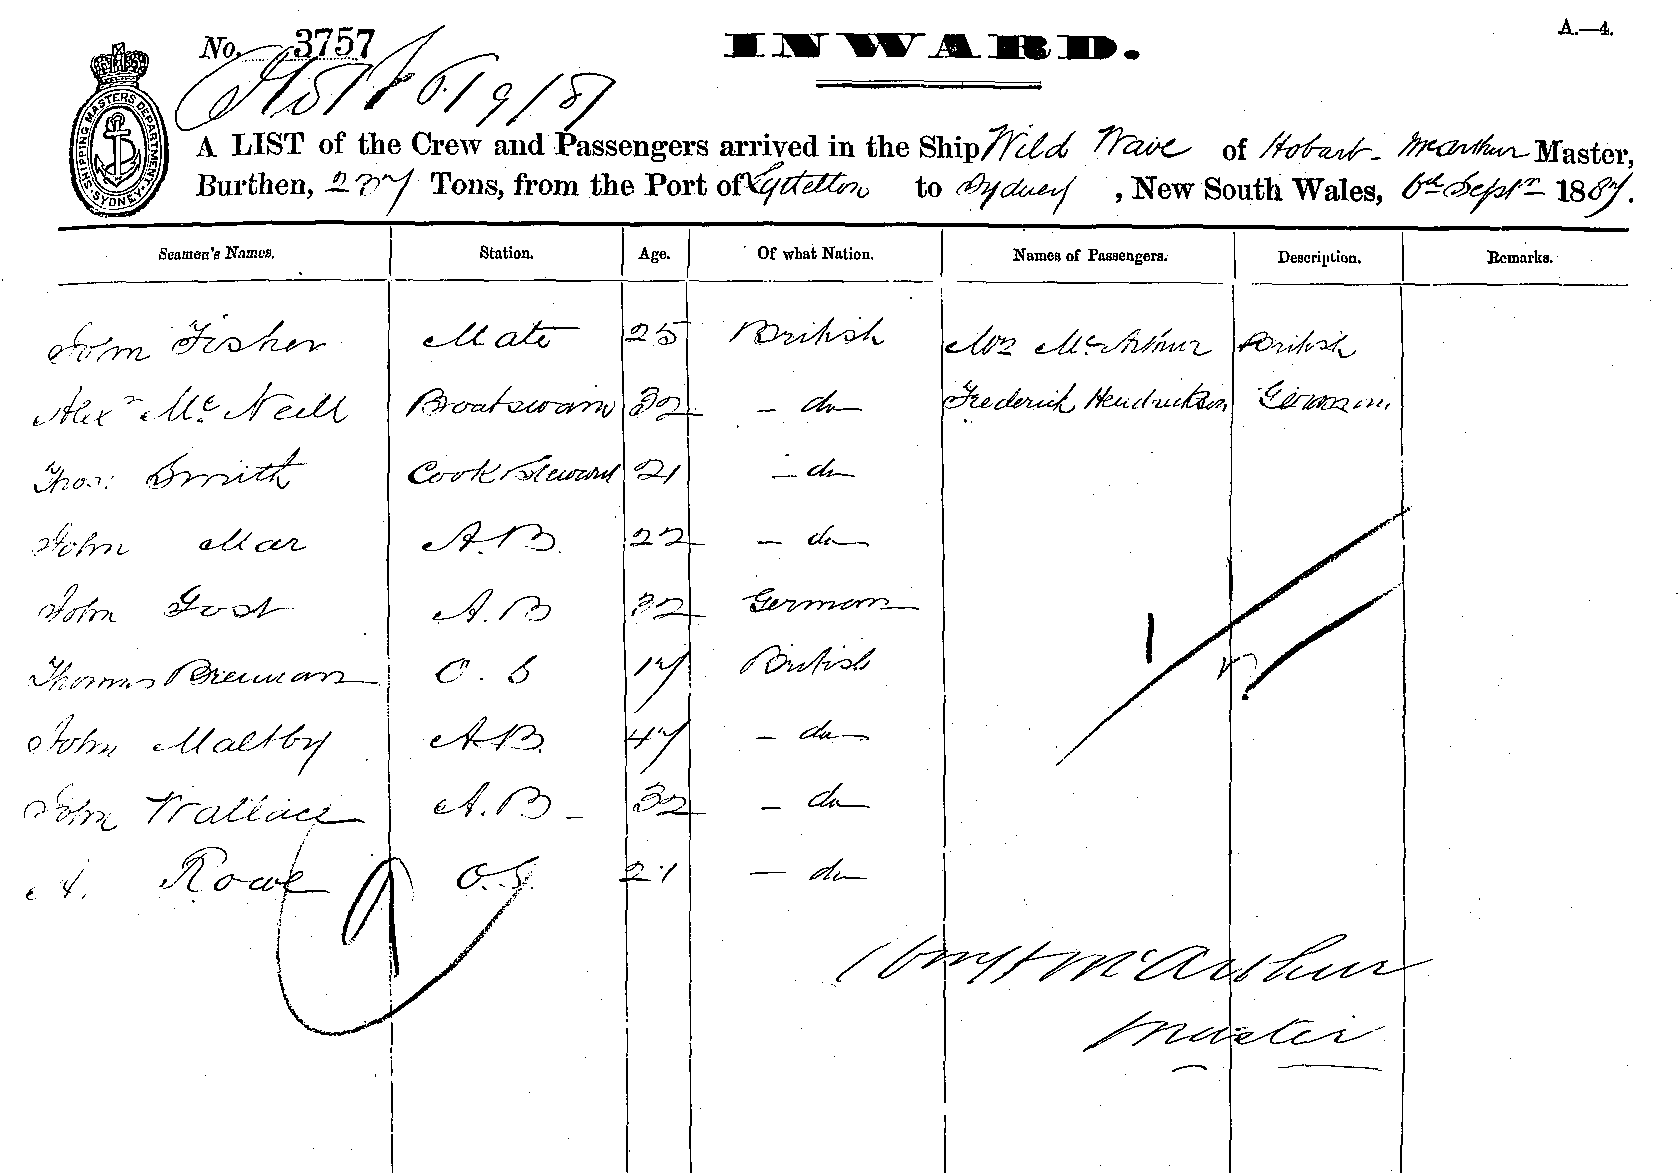 A.—4.
No. 3757
INWARD.
SHIPPING MASTERS DEPARTMENT SYDNEY
A LIST of the Crew and Passengers arrived in the Ship Wild Wave of Hobart - McArthur Master,
Burthen, 237 Tons, from the Port of Lyttelton to Sydney, New South Wales, 6th Septr 1887.
Seamen's Names. Station. Age. Of what Nation. Names of Passengers. Description. Remarks.
John Fisher Mate 25 British Mrs McArthur British
Alexr McNeill Boatswain 32 - do Frederick Hendrickson German
Thos: Smith Cook Steward 21 - do
John Mar A.B. 22 - do
John Gost A.B 32 German
Thomas Brennan O.S 17 British
John Maltby A.B. 47 - do
John Wallace A.B - 32 - do
A. Rowe O.S. 21 - do
9
1
McArthur
Master